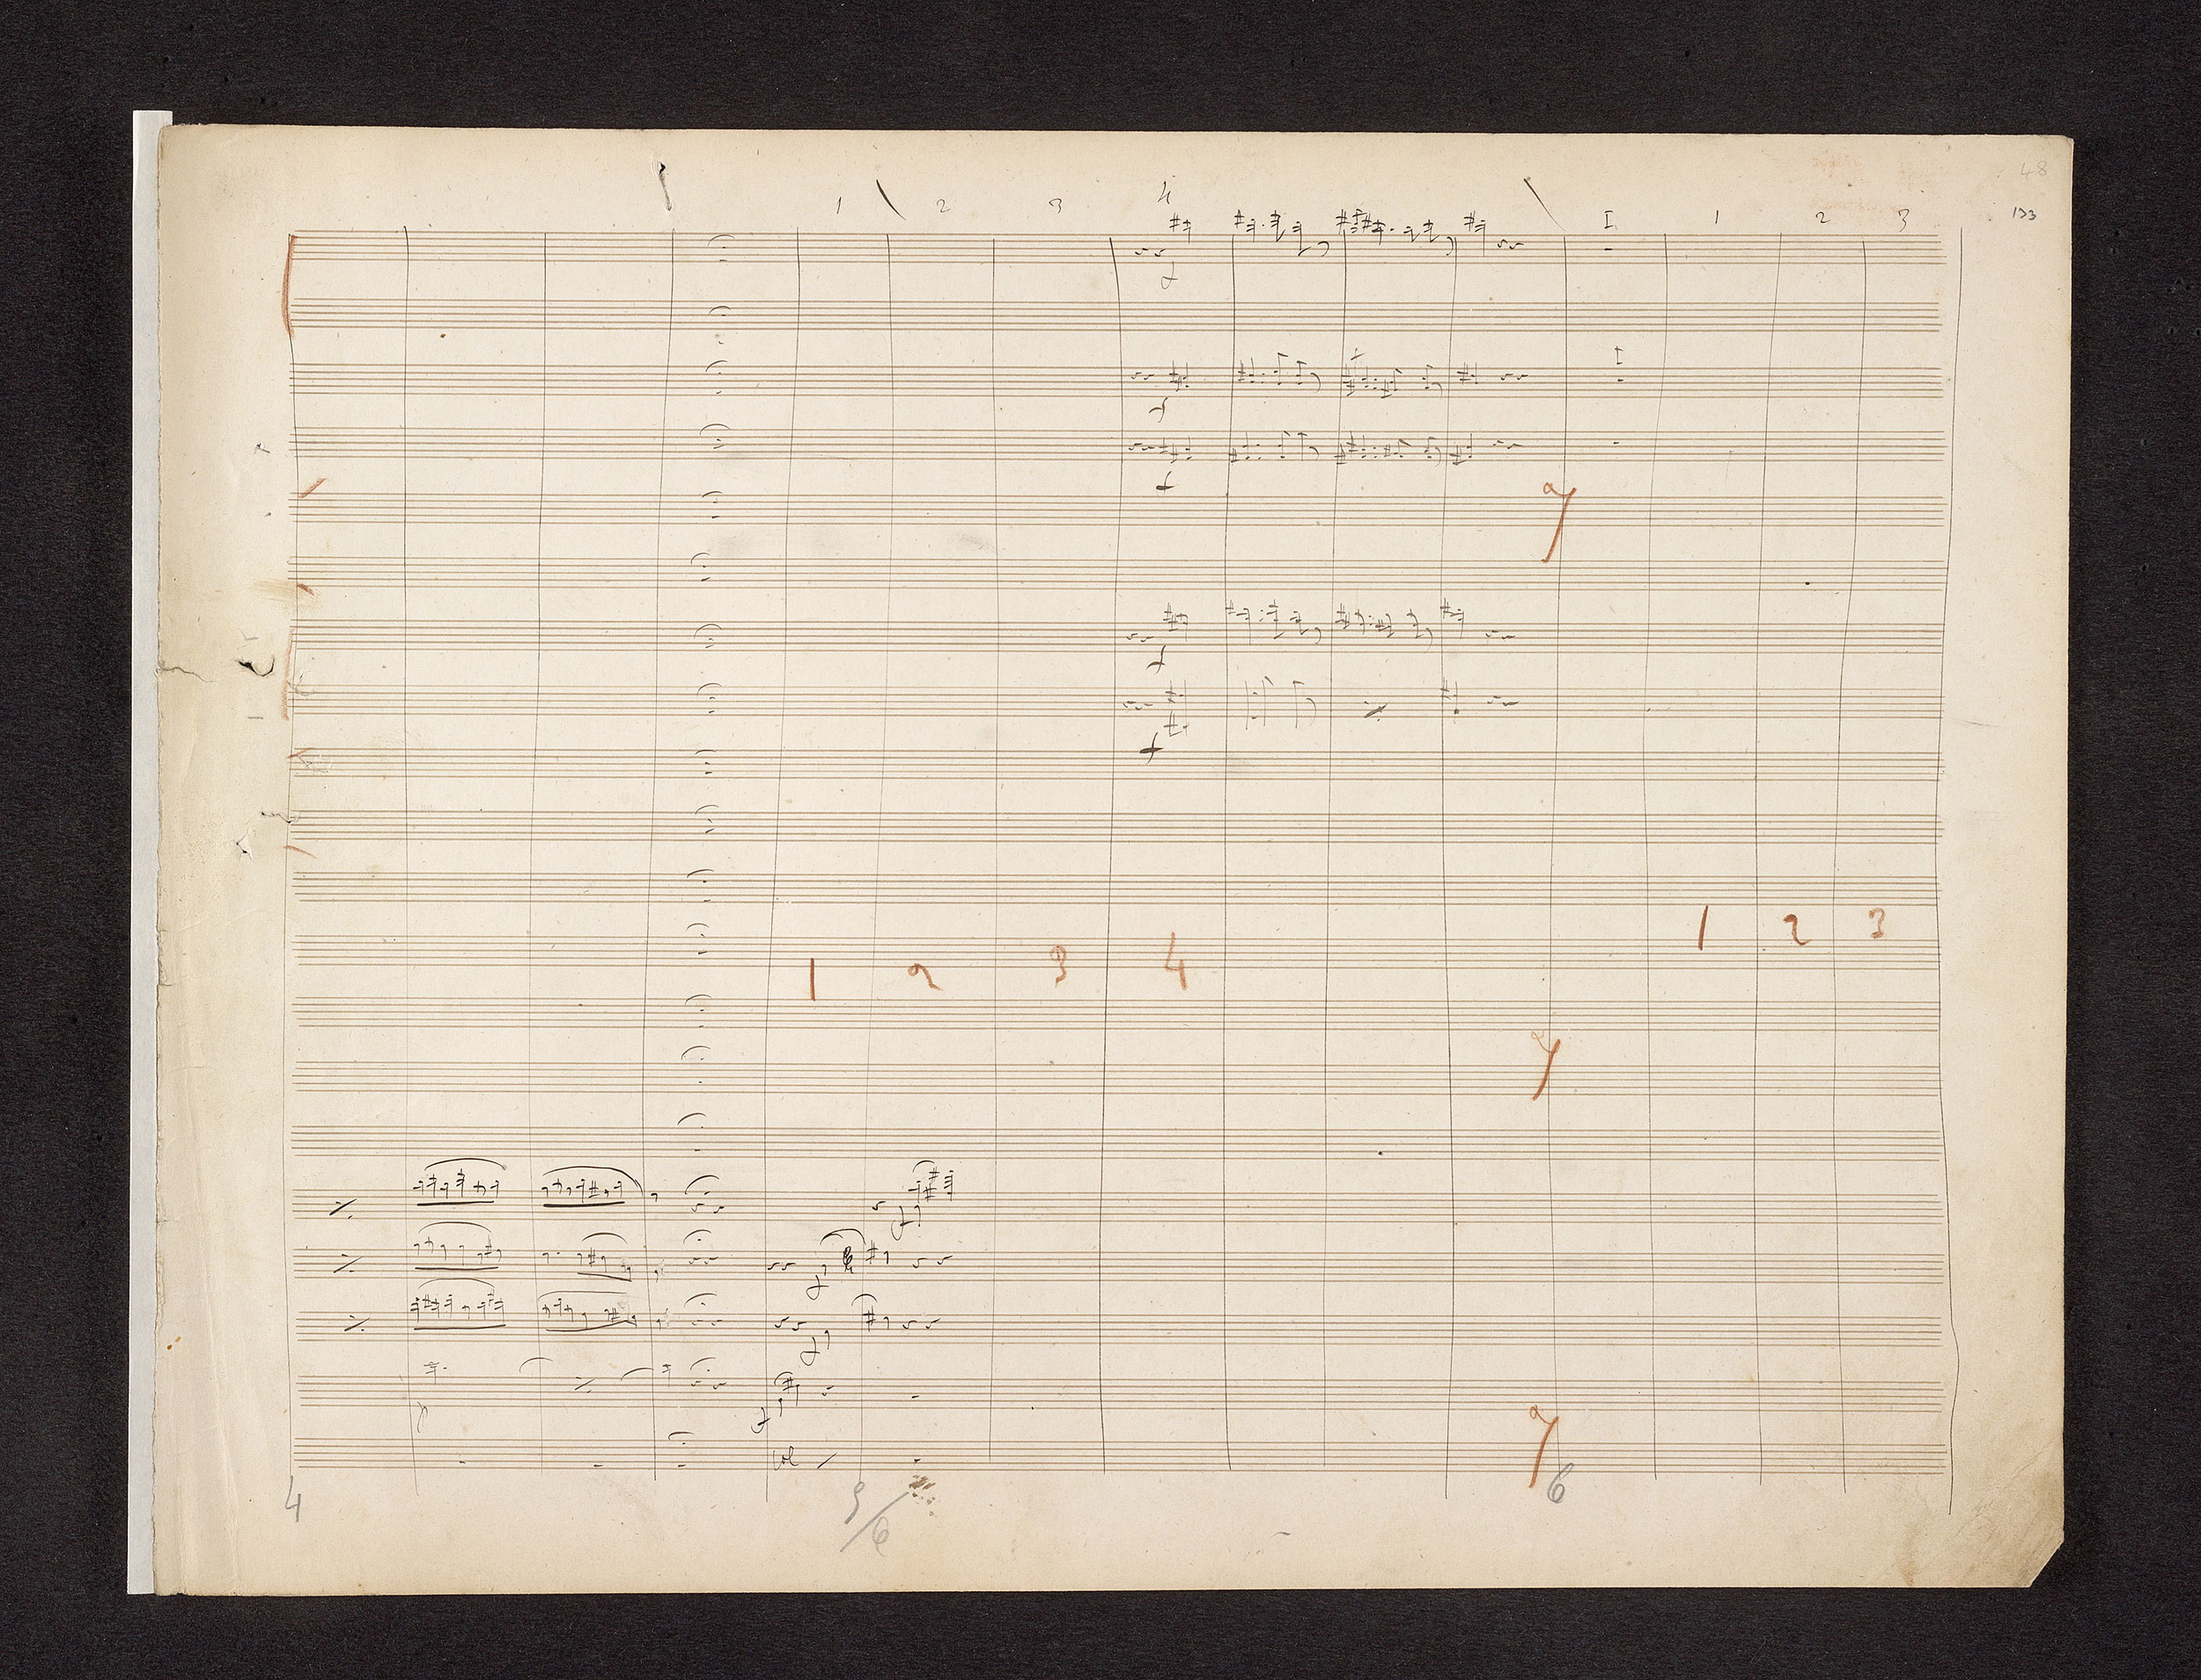 48
1 2 3 4 I 1 2 3 133
f
f
f
f
f
1 2 3
1 2 3 4
f
f
f
f
4 5/6 6